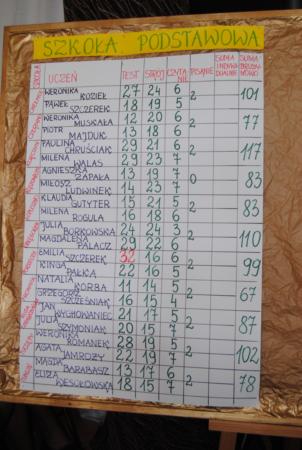 SZKOŁA PODSTAWOWA
SZKOŁA UCZEŃ TEST STRÓJ CZYTANIE PISANIE SUMA INDYWIDUALNIE SUMA DRUŻYNOWO
WERONIKA KOZIEŁ 27 24 6 2 101
PAWEŁ SZCZEREK 18 19 5
WERONIKA MUSKAŁA 12 20 6 2 77
PIOTR MAJDUK 13 18 6
PAULINA CHRUŚCIAK 29 21 6 2 117
MILENA WALAS 29 23 7
AGNIESZKA ZAPAŁA 13 19 7 0 83
MIŁOSZ LUDWINEK 14 23 7
KLAUDIA GUTYTER 15 21 5 2 83
MILENA ROGULA 16 18 6
JULIA BORKOWSKA 24 24 3 2 110
MAGDALENA PALACZ 29 22 6
EMILIA SZCZEREK 32 16 6 2 99
KINGA PAŁKA 22 16 5
NATALIA KORBA 11 14 5 2 67
GRZEGORZ SZCZEŚNIAK 16 15 4
JAN WYCHOWANIEC 21 17 5 2 87
JULIA SZYMONIAK 20 15 7
WERONIKA ROMANEK 28 19 5 2 102
AGATA JAMROŻY 22 19 7
MAGDA BARABASZ 13 17 6 2 78
ELIZA WESOŁOWSKA 18 15 7